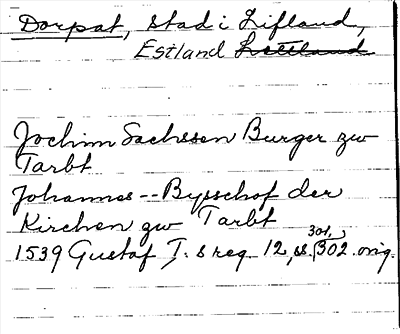 Dorpat, stad i Lifland,
Estland Lettland
Jochim Sachssen Burger zw
Tarbt
Johannes -- Bysschof der
Kirchen zw Tarbt
301,
1539 Gustaf I. s reg. 12, s. 302. orig.